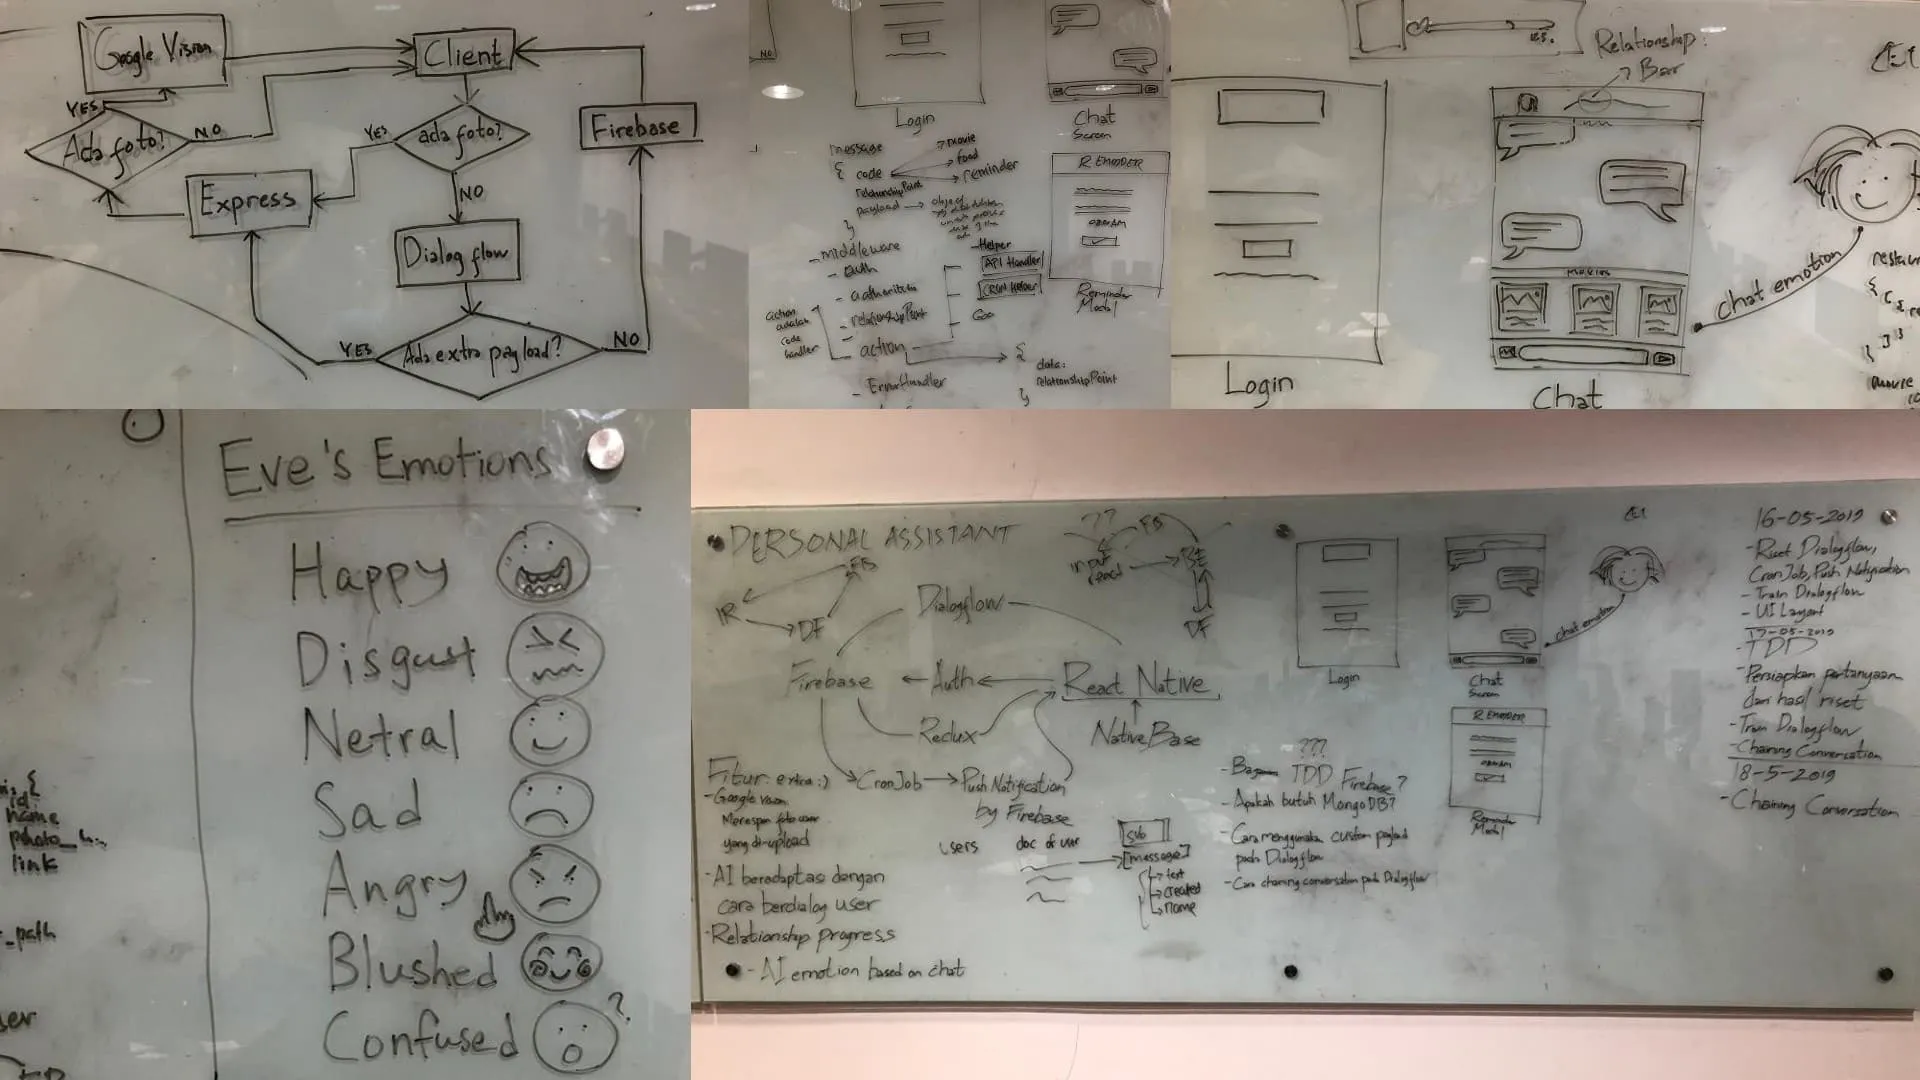 Google Vision
Client
YES
Ada foto?
NO
YES
ada foto?
Firebase
Express
NO
Dialog flow
YES
Ada extra payload?
NO
NO
Login
Chat
Screen
message
{ code
movie
food
reminder
relationshipPoint
payload → object
}
REMINDER
Reminder
Modal
- middleware
- auth
- authoritize
- relationshipPoint
- action
- ErrorHandler
action
adalah
code
handler
- Helper
API Handler
CRON Helper
Goo
{
data:
relationshipPoint
}
Relationship
Bar
Login
Movies
Chat
chat emotion
restaur
{
movie
Eve's Emotions
Happy
Disgust
Netral
Sad
Angry
Blushed
Confused ?
{
id
name
photo_
link
_path
PERSONAL ASSISTANT
FB
IR
DF
??
FB
input
react
BE
DF
Dialogflow
Firebase ← Auth ← React Native
Redux
NativeBase
CronJob → Push Notification
by Firebase
Fitur extra :)
- Google Vision
Merespon foto user
yang di-upload
- AI beradaptasi dengan
cara berdialog user
- Relationship progress
- AI emotion based on chat
users
doc of user
sub
[message]
text
created
name
???
TDD Firebase?
- Apakah butuh MongoDB?
- Cara menggunakan custom payload
pada Dialogflow
- Cara chaining conversation pada Dialogflow
Login
Chat
Screen
chat emotion
REMINDER
Reminder
Modal
16-05-2019
- Riset Dialogflow,
CronJob, Push Notification
- Train Dialogflow
- UI Layout
17-05-2019
- TDD
- Persiapkan pertanyaan
dari hasil riset
- Train Dialogflow
- Chaining Conversation
18-5-2019
- Chaining Conversation